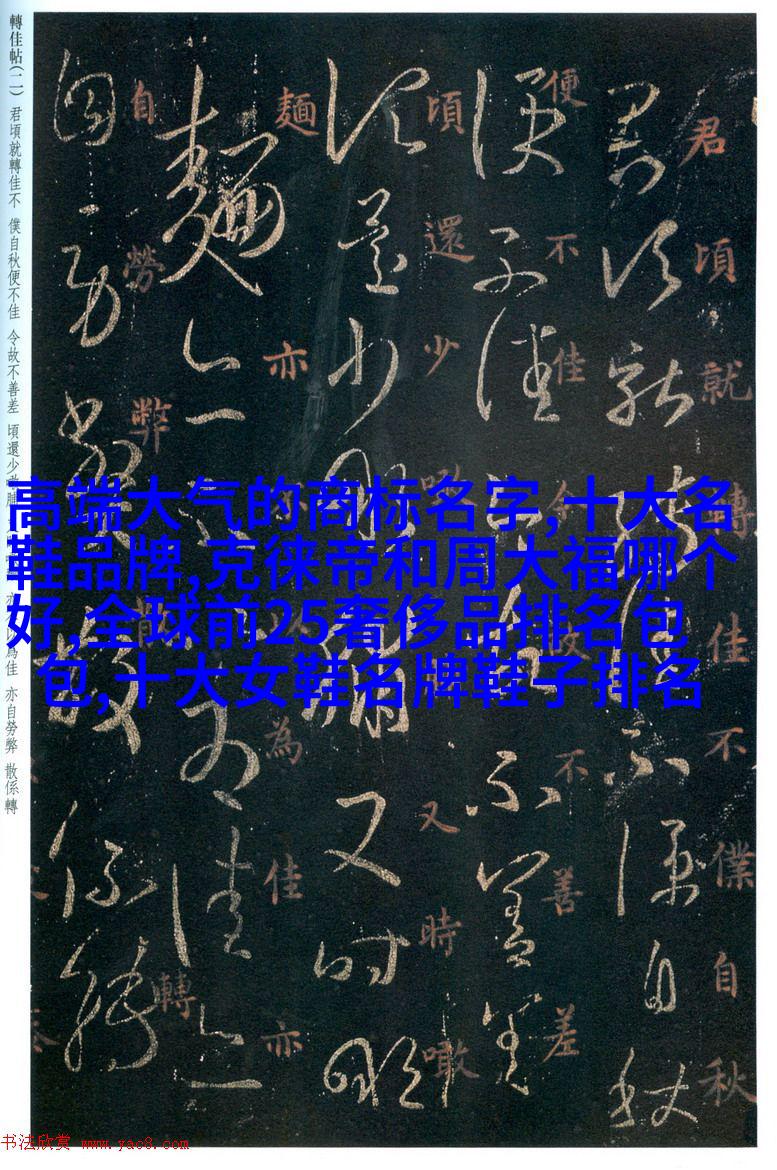 高端大气的商标名字,十大名
鞋品牌,克徕帝和周大福哪个
好,全球前25奢侈品排名包
包,十大女鞋名牌鞋子排名
君頃就轉佳不僕自秋
便不佳令故不善差
頃還少噉脯又時噉
麵亦不以為佳亦
自勞弊散係轉
轉佳帖(二) 君頃就轉佳不 僕自秋便不佳 令故不善差 頃還少 為佳 亦自勞弊 散係轉
书法欣赏 www.yac8.com